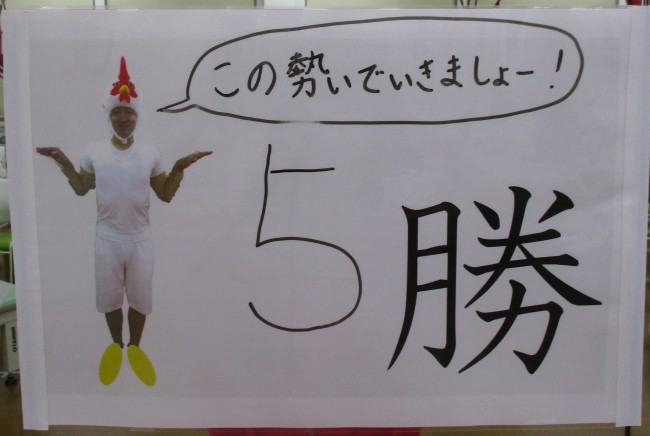 この勢いでいきましょー!
5勝